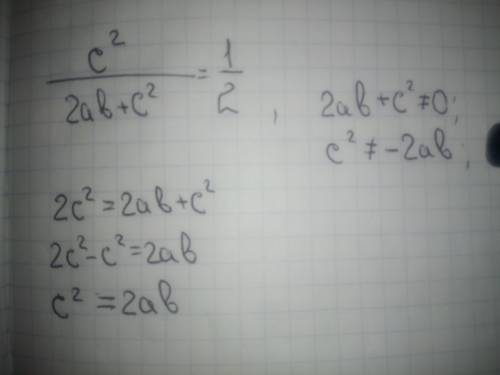 c²/(2ab+c²) = 1/2, 2ab+c²≠0;
c² ≠ -2ab;
2c² = 2ab+c²
2c²-c² = 2ab
c² = 2ab